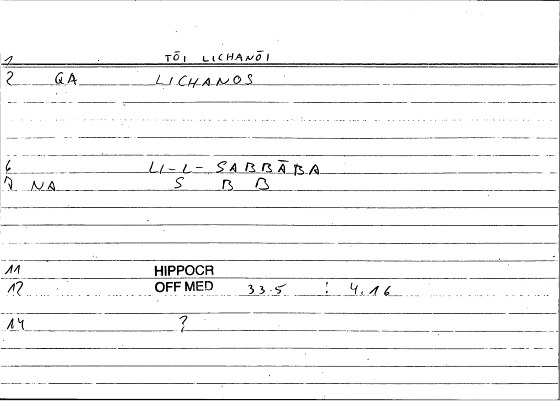 1 TŌI LICHANŌI
2 QA LICHANOS
6 LI-L-SABBĀBA
7 NA S B B
11 HIPPOCR
12 OFF MED 33.5 : 4.16
14 ?